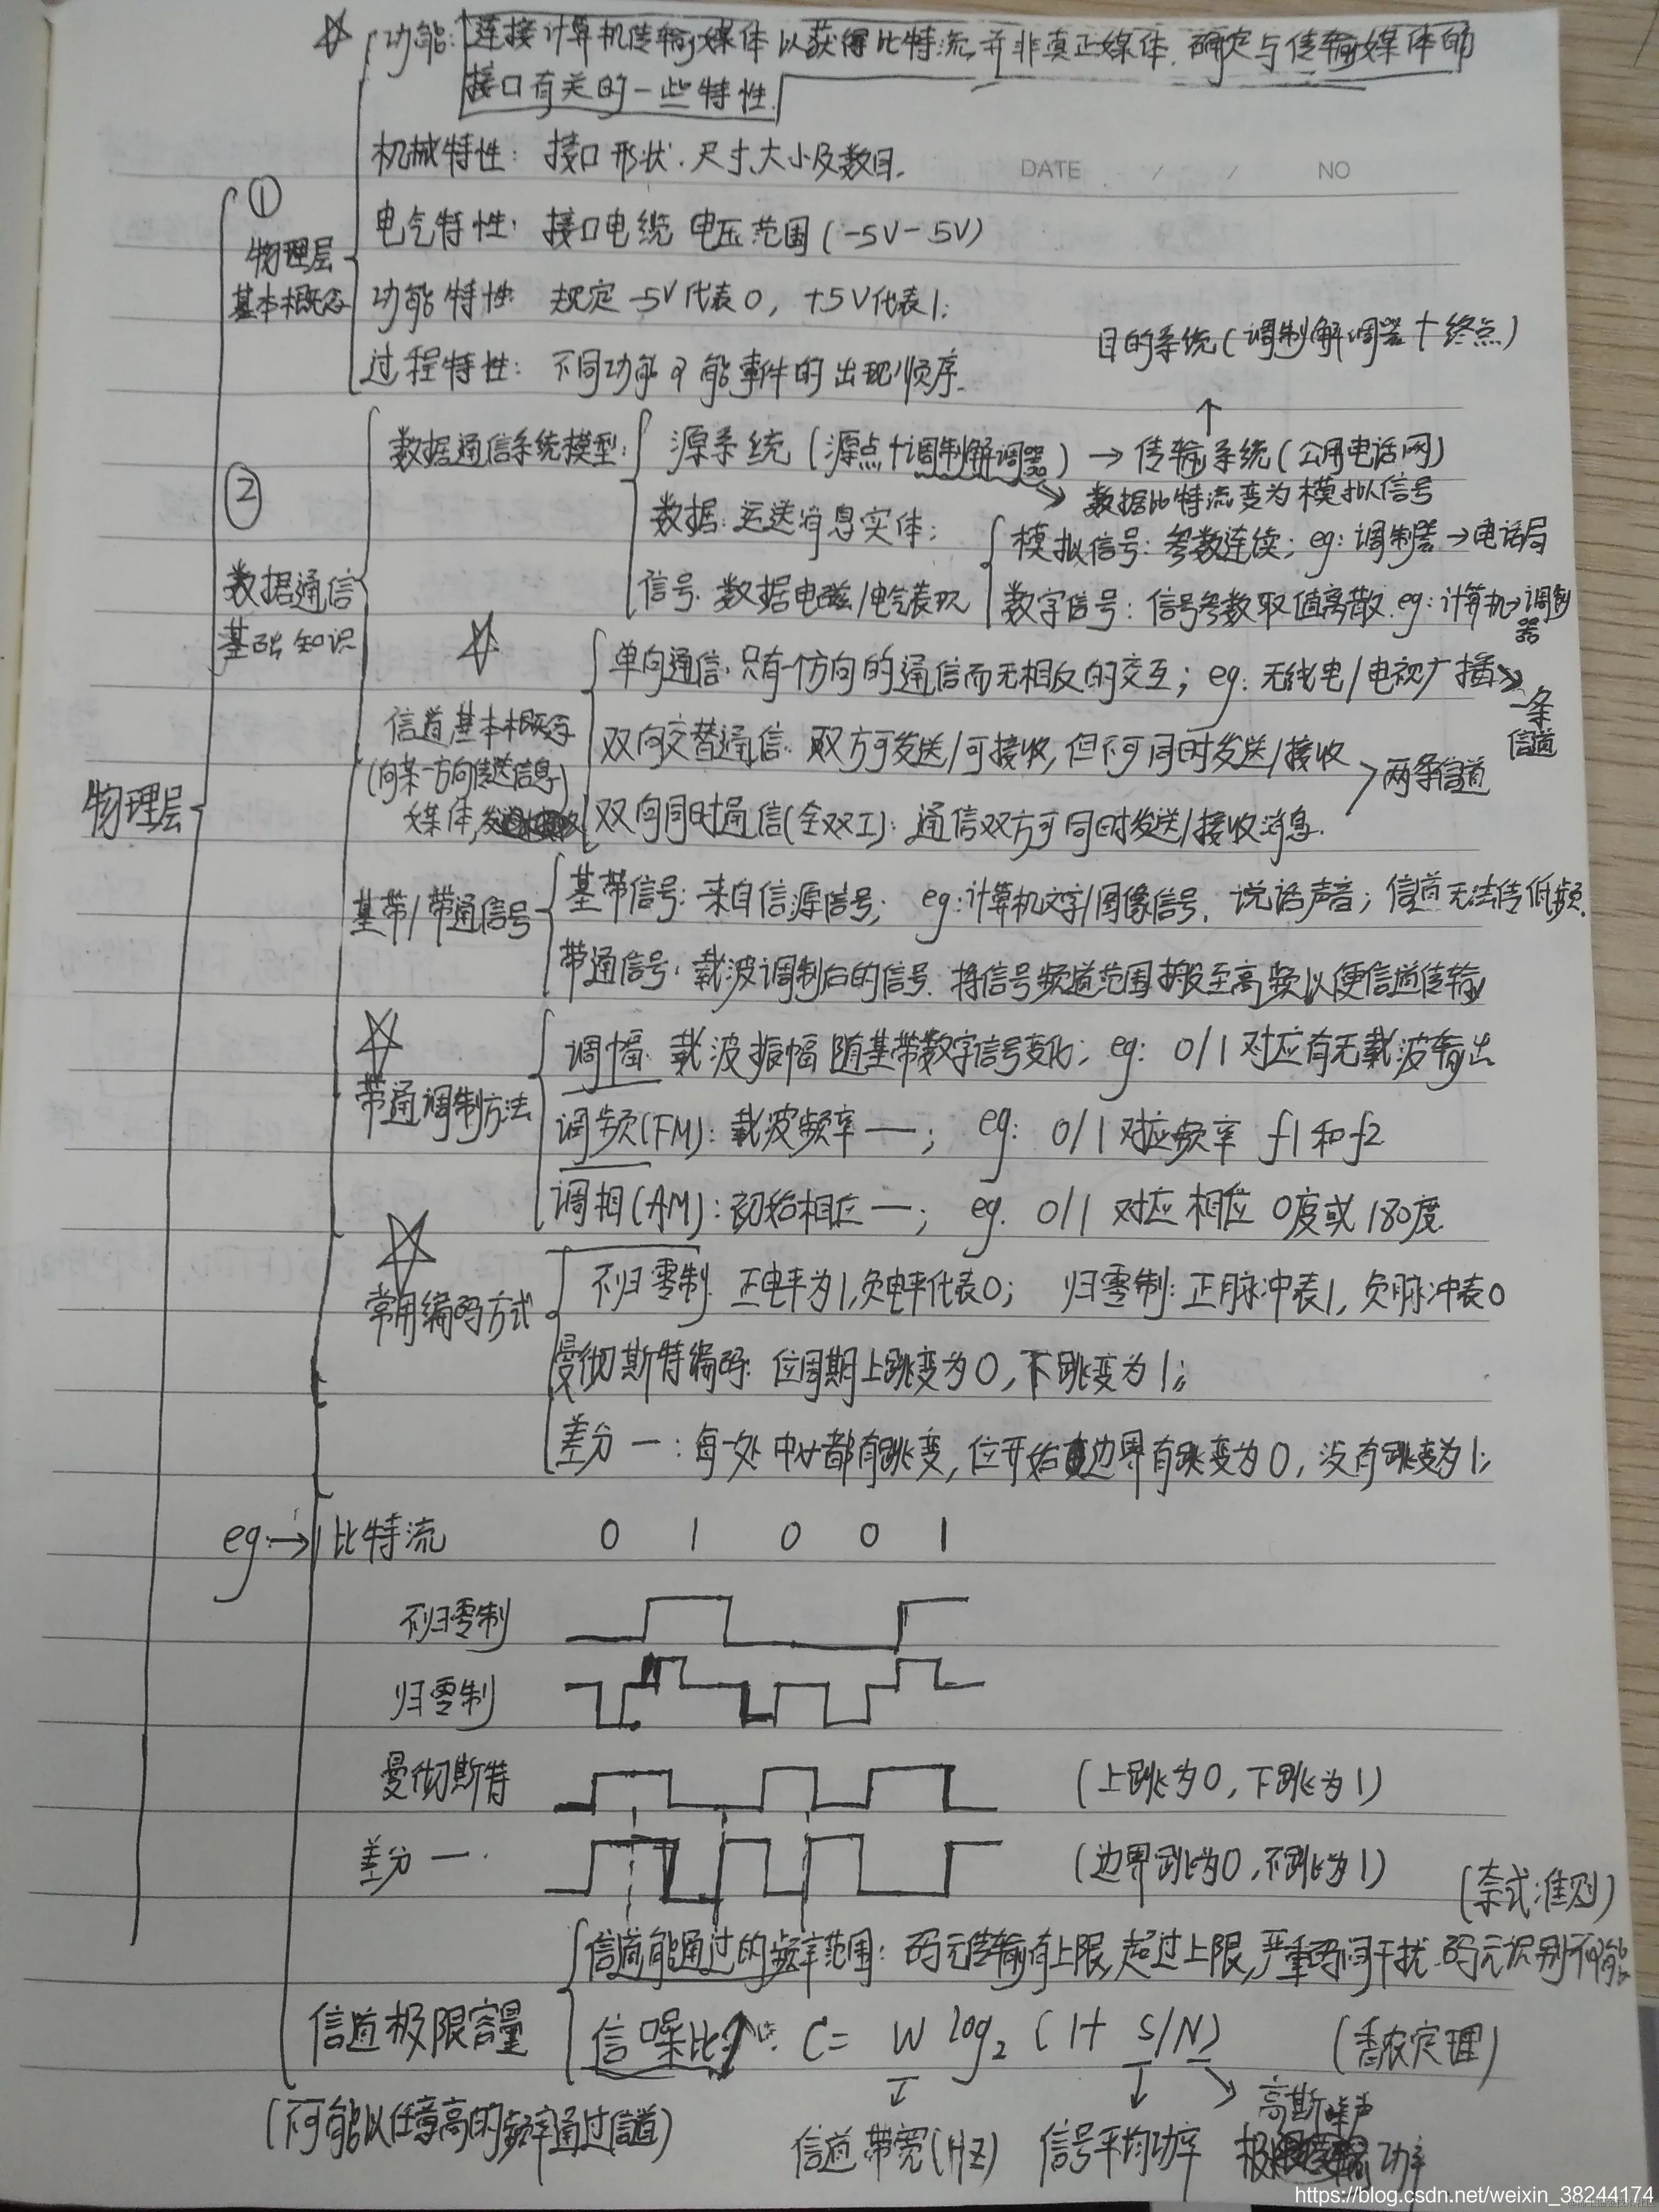 功能: 连接计算机传输媒体以获得比特流,并非真正媒体. 确定与传输媒体的
接口有关的一些特性.
机械特性: 接口形状.尺寸大小及数目.
DATE / / NO
①
电气特性: 接口电缆 电压范围(-5V-5V)
物理层
基本概念
功能特性 规定 -5V代表0, +5V代表1;
目的系统(调制解调器+终点)
过程特性: 不同功能可能事件的出现顺序.
↑
数据通信系统模型: 源系统 (源点+调制解调器) → 传输系统(公用电话网)
②
数据比特流变为模拟信号
数据: 运送消息实体;
模拟信号: 参数连续; eg: 调制器→电话局
数据通信
基础知识
信号. 数据电磁/电气表现
数字信号: 信号参数取值离散. eg: 计算机→调制
器
单向通信. 只有一个方向的通信而无相反的交互; eg: 无线电/电视广播→
一条
信道
信道基本概念
(向某一方向传送信息)
媒体,
双向交替通信. 双方可发送/可接收,但不可同时发送/接收
两条信道
物理层
双向同时通信(全双工): 通信双方可同时发送/接收消息.
基带/带通信号
基带信号: 来自信源信号; eg:计算机文字/图像信号. 说话声音; 信道无法传低频.
带通信号: 载波调制后的信号. 将信号频道范围搬至高频以便信道传输
带通调制方法
调幅. 载波振幅随基带数字信号变化; eg: 0/1对应有无载波输出
调频(FM): 载波频率—; eg: 0/1对应频率 f1和f2
调相(AM): 初始相位—; eg. 0/1 对应相位 0度或180度
常用编码方式
不归零制. 正电平为1,负电平代表0; 归零制: 正脉冲表1, 负脉冲表0
曼彻斯特编码: 位周期上跳变为0,下跳变为1;
差分一: 每一处中心都有跳变,位开始边界有跳变为0, 没有跳变为1;
eg:→ 比特流 0 1 0 0 1
不归零制
归零制
曼彻斯特 (上跳为0,下跳为1)
差分一. (边界跳为0,不跳为1)
(奈式准则)
信道能通过的频率范围: 码元传输有上限,超过上限,严重码间干扰.码元识别不可能
信道极限容量
信噪比: C= W log2 (1+ S/N) (香农定理)
(不可能以任意高的频率通过信道)
信道带宽(HZ) 信号平均功率
高斯噪声
功率
https://blog.csdn.net/weixin_38244174